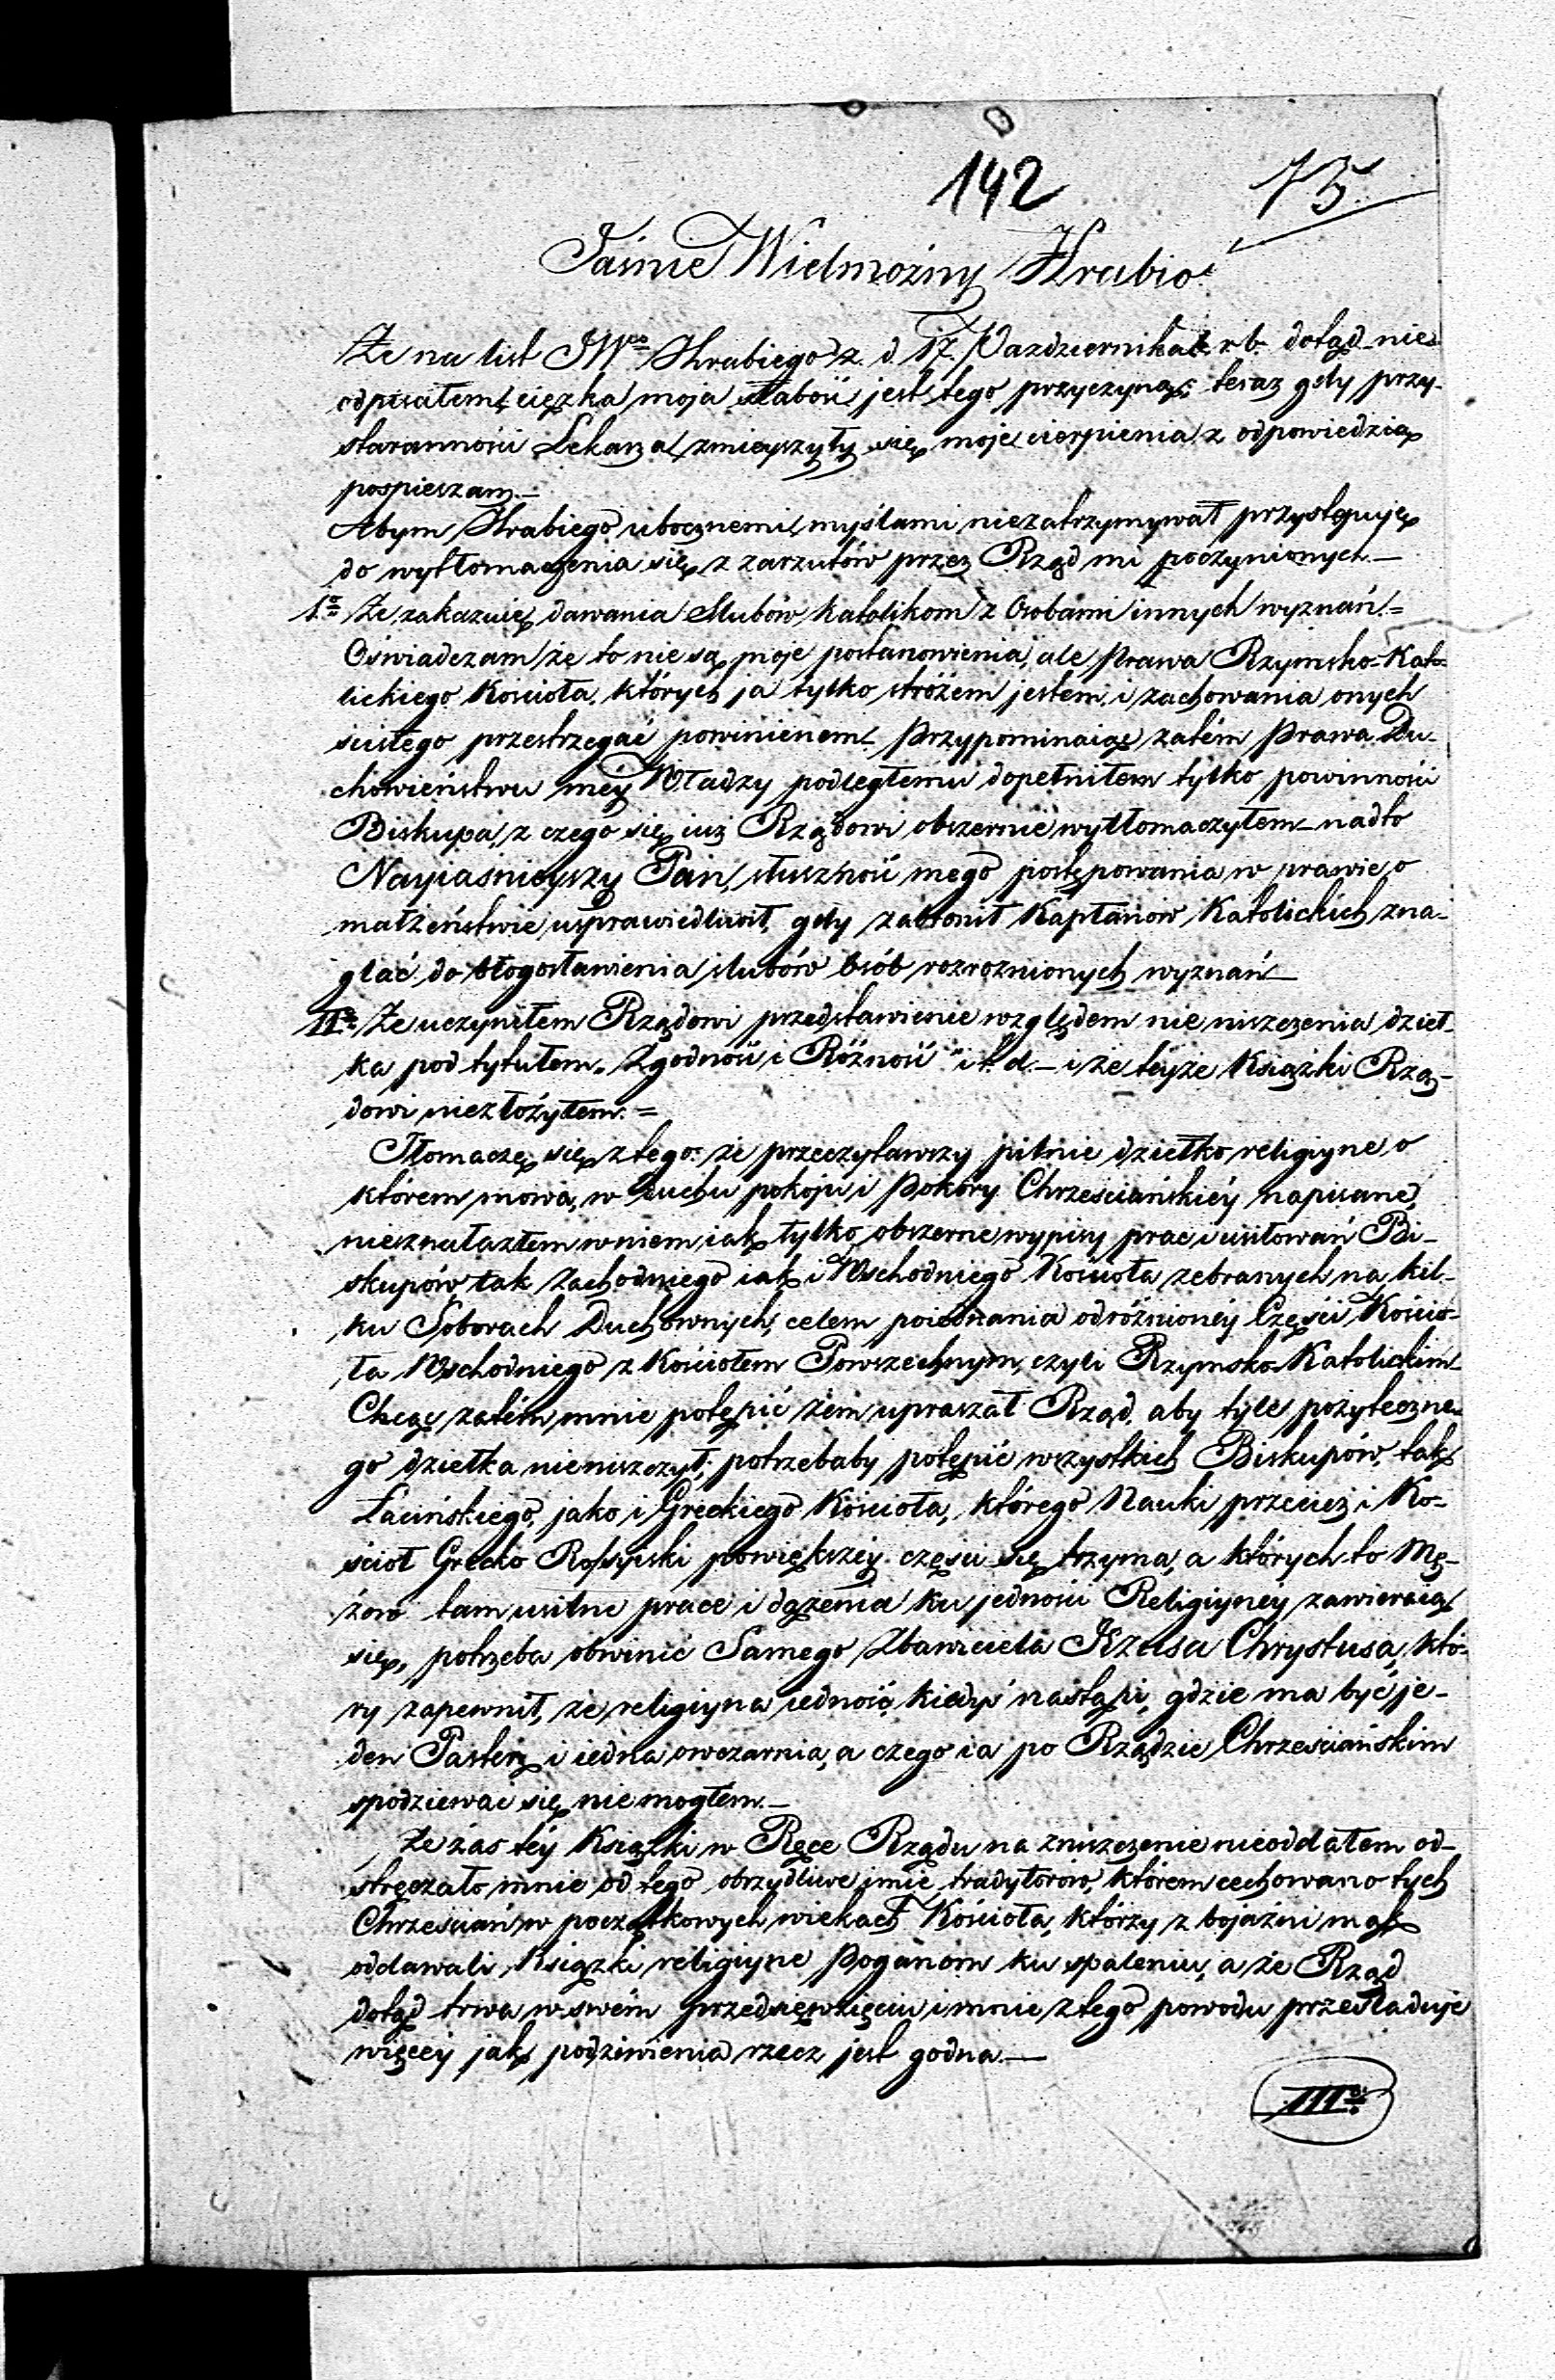 142
75.
Jaśnie Wielmożny Hrabio!
Że na list JWgo Hrabiego z d. 17. Pazdziernika r. b. dotąd nie
odpisałem, ciężka moja słabość jest tego przyczyną; teraz gdy przy
staranności Lekarza zmieyszyły się moje cierpienia z odpowiedzią
pospieszam.—
Abym Hrabiego ubocznemi myślami niezatrzymywał przystępuję
do wytłomaczenia się z zarzutów przez Rząd mi poczynionych.—
1o Że zakazuię dawania Slubów Katolikom z Osobami innych wyznań.=
Oświadczam że to nie są moje postanowienia, ale Prawa Rzymsko-Kato-
lickiego Kościoła, których ja tylko stróżem jestem, i zachowania onych
scisłego przestrzegać powinienem. Przypominaiąc zatém Prawa Du-
chowieństwu méy Władzy podległemu dopełniłem tylko powinności
Biskupa, z czego się iuż Rządowi obszernie wytłomaczyłem — nadto
Nayiaśnieyszy Pan słuszność mego postępowania w prawie o
małżeństwie usprawiedliwił, gdy zabronił Kapłanów Katolickich zna-
glać do błogosławienia slubów osób rozrożnionych wyznań —
IIo Że uczyniłem Rządowi przedstawienie względem nie niszczenia dzieł-
ka pod tytułem „Zgodność i Różność" i t. d. — i że téyże Książki Rzą-
dowi niezłożyłem. =
Tłomaczę się z tego: że przeczytawszy pilnie dziełko religiyne o
którem mowa, w duchu pokoju i Pokory Chrześciańskiéy napisane,
nieznalazłem w niem, iak tylko obszerne wypisy prac i usiłowań Bi-
skupów, tak Zachodniego iak i Wschodniego Kościoła zebranych na kil-
ku Soborach Duchownych, celem poiednania odróżnionéy Części Kościo-
ła Wschodniego z Kościołem Powszechnym, czyli Rzymsko Katolickim —
Chcąc zatém mnie potępić żem upraszał Rząd, aby tyle pożyteczne-
go dziełka nieniszczył; potrzebaby potępić wszystkich Biskupów, tak
Łacińskiego, jako i Greckiego Kościoła, którego Nauki przecież i Ko-
ściół Grecko Rossyiski powiększéy części się trzyma, a których to Mę-
żów tam usilne prace i dążenia ku jedności Religiynéy zawieraią
się, potrzeba obwinić Samego Zbawiciela Jezusa Chrystusa, któ-
ry zapewnił, że religiyna iedność kiedyś nastąpi, gdzie ma być je-
den Pasterz i iedna owczarnia, a czego ia po Rządzie Chrześciańskim
spodziewać się nie mogłem.—
Że zas téy Książki w Ręce Rządu na zniszczenie nieoddałem od-
stręczało mnie od tego obrzydliwe imie tradytorów, którem cechowano tych
Chrześcian w początkowych wiekach Kościoła, którzy z bojaźni mąk
oddawali Książki religiyne Poganom ku spaleniu, a że Rząd
dotąd trwa w swém przedsięwzięciu i mnie z tego powodu prześladuje
więcéy jak podziwienia rzecz jest godna.—
IIIo